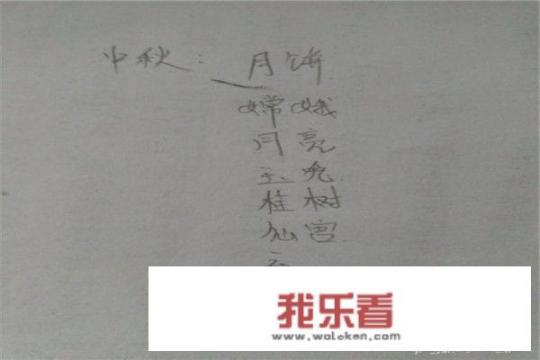 中秋：月饼
嫦娥
月亮
玉兔
桂树
仙宫
我乐看
www.waleken.com